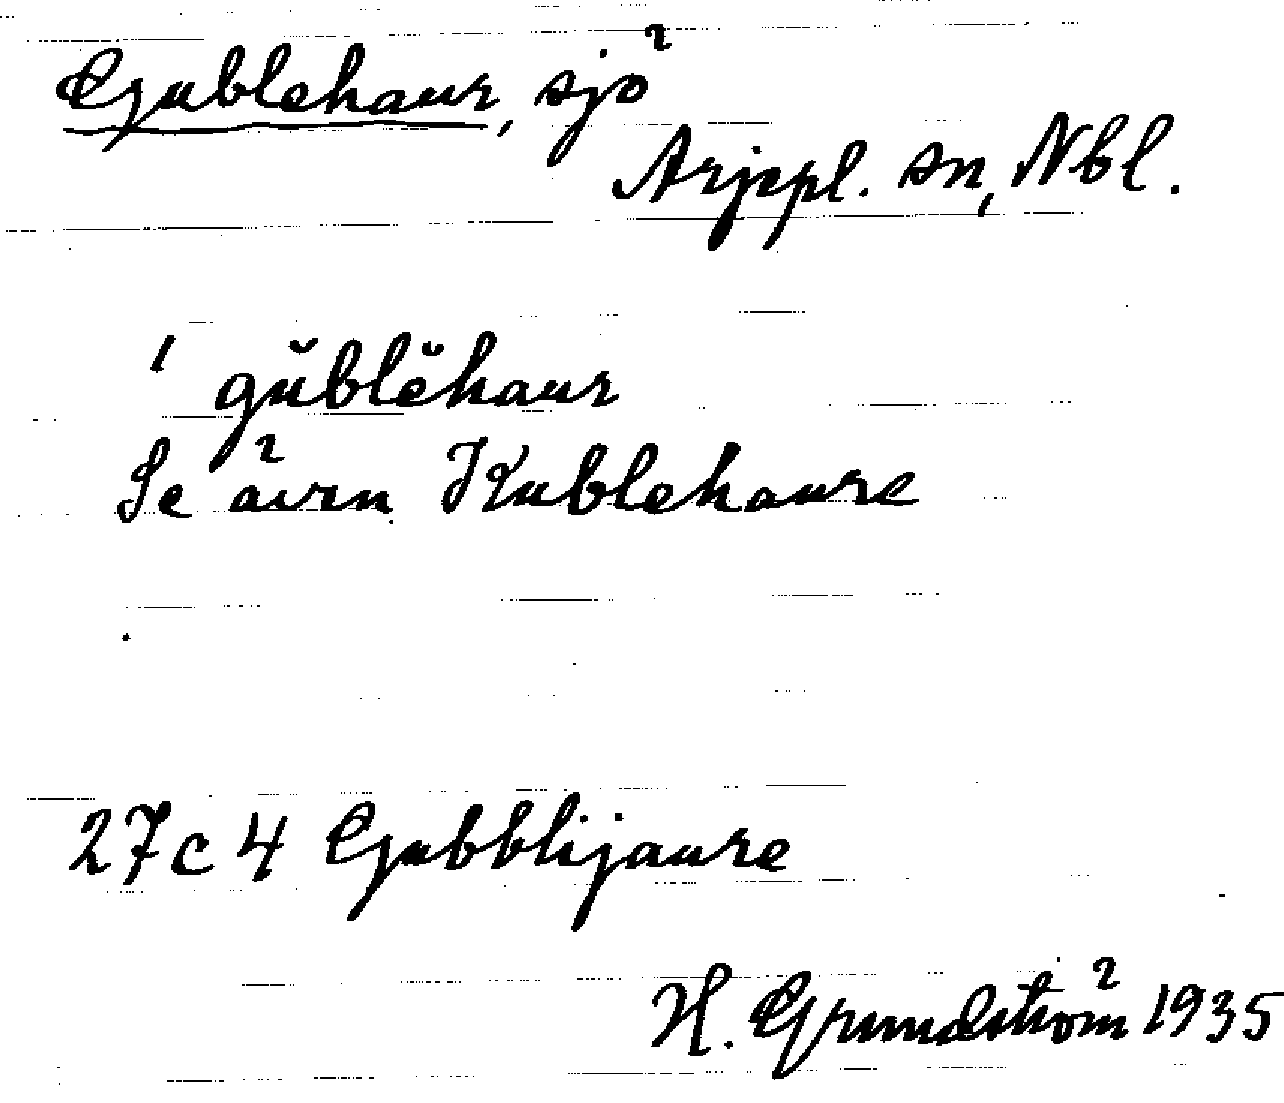 Gublehaur, sjö
Arjepl. sn, Nbl.
ˈgŭblĕhaur
Se även Kublehaure
27c 4 Gubblijaure
H. Grundström 1935